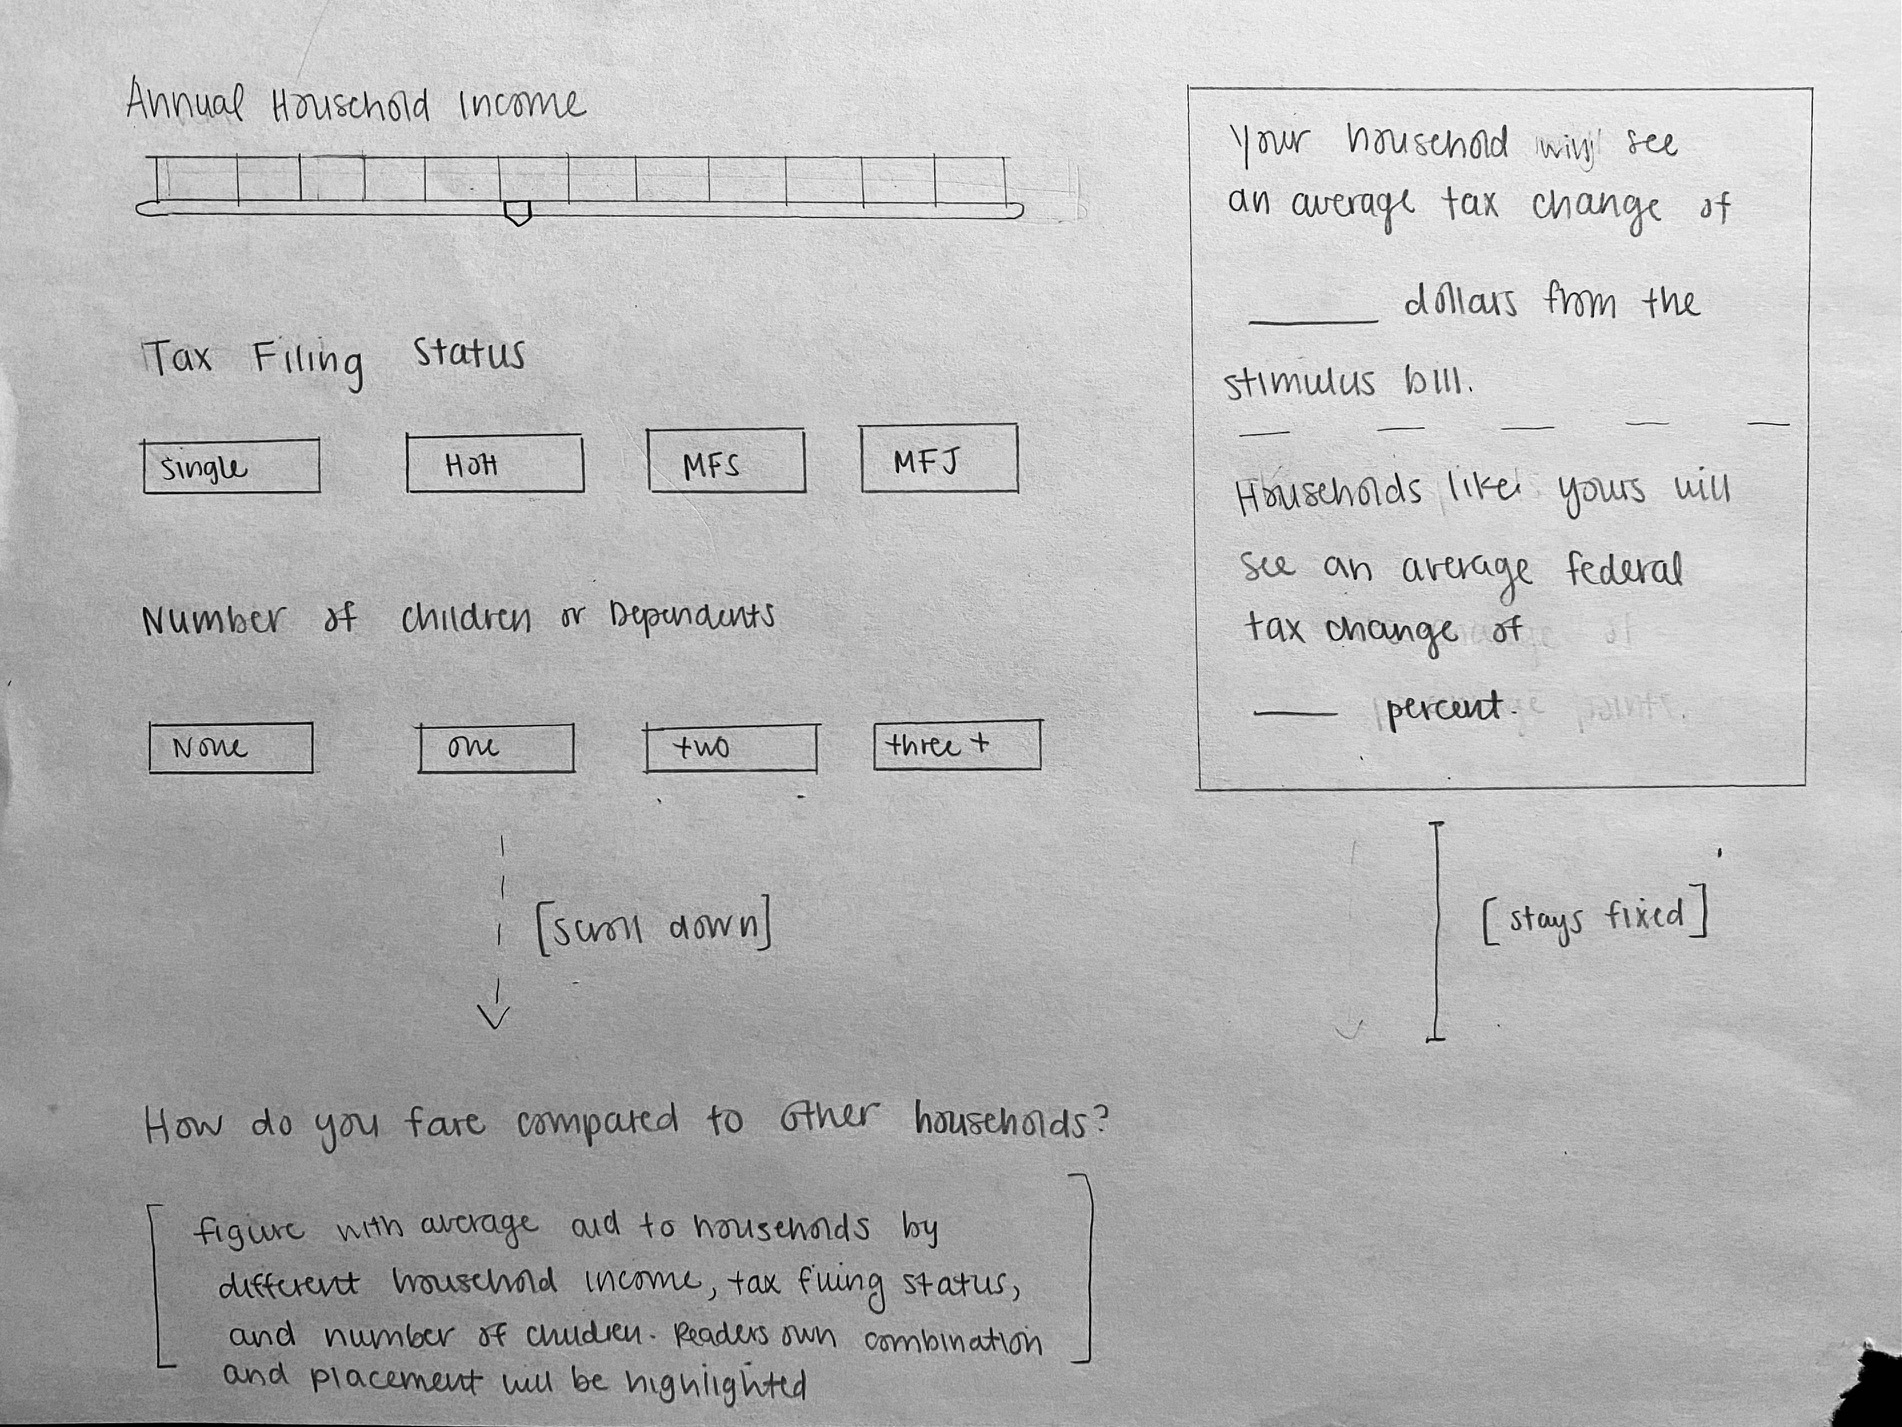 Annual Household Income
Tax Filing Status
Single
HOH
MFS
MFJ
Number of children or Dependents
None
one
two
three +
[scroll down]
Your household will see
an average tax change of
______ dollars from the
stimulus bill.
Households like yours will
see an average federal
tax change of
____ percent.
[stays fixed]
How do you fare compared to other households?
[figure with average aid to households by
different household income, tax filing status,
and number of children. Readers own combination
and placement will be highlighted]